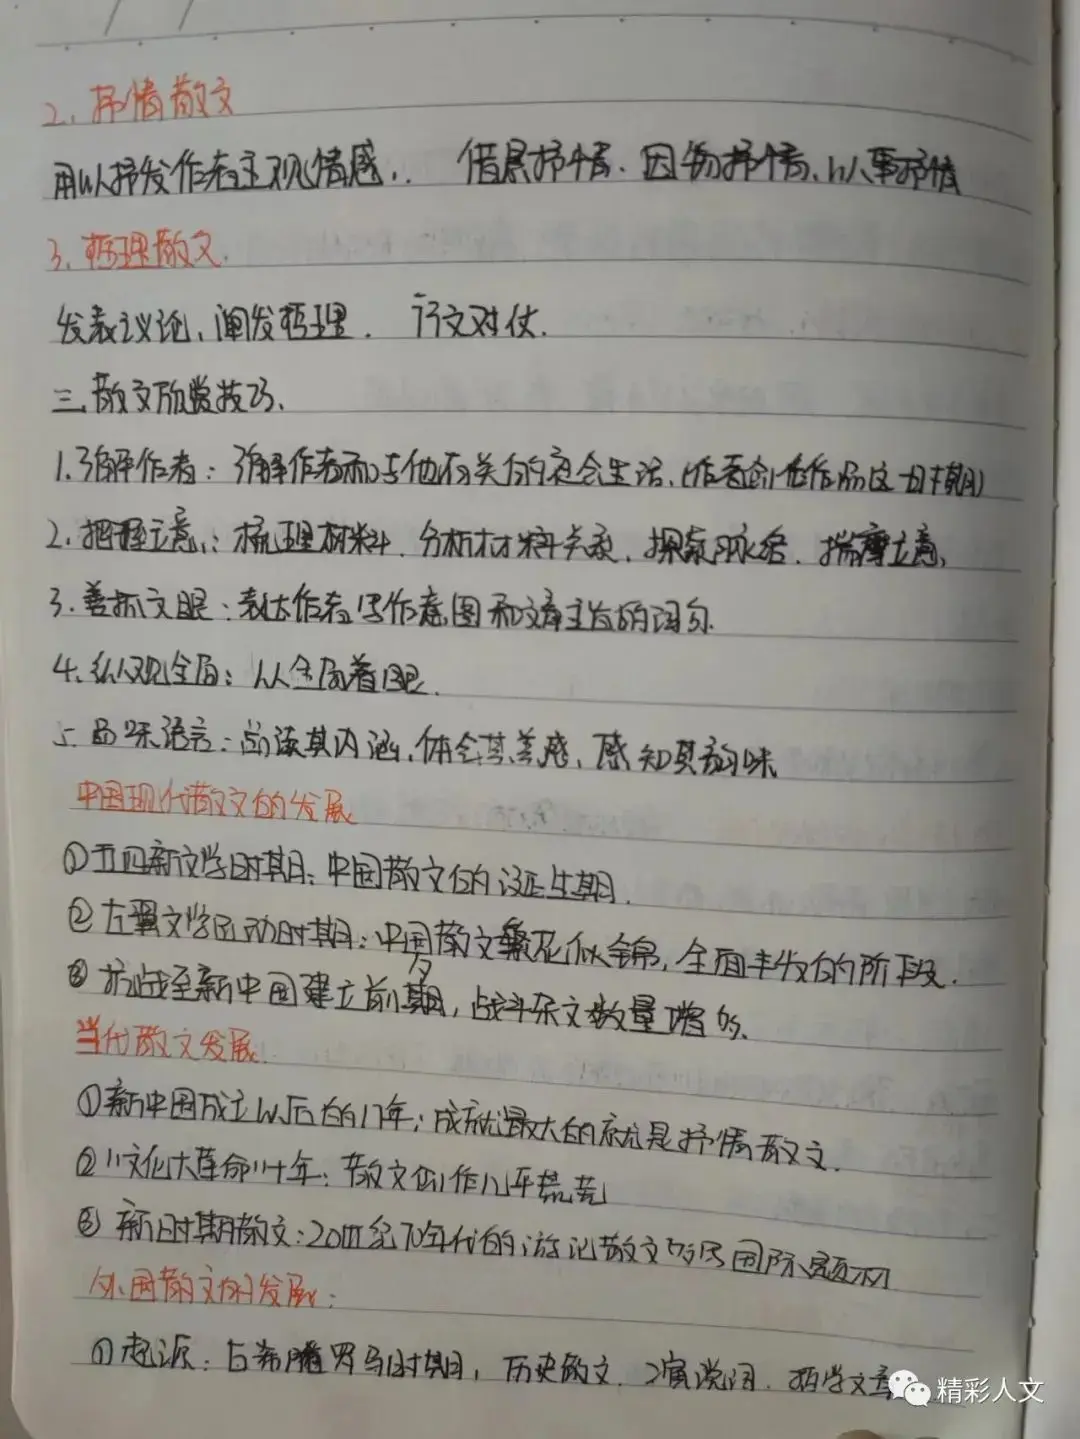 2、抒情散文
用以抒发作者主观情感, 借景抒情、因物抒情、以事抒情
3、哲理散文.
发表议论、阐发哲理. 行文对仗.
三、散文欣赏技巧、
1.了解作者：了解作者和与他有关的社会生活、(作者创作作品这一时期)
2、把握立意：梳理材料、分析材料关系、探索脉络、揣摩立意、
3、善抓文眼：表达作者写作意图和文章主旨的词句.
4、纵观全局：从全局着眼.
5、品味语言：阅读其内涵、体会其美感、感知其韵味
中国现代散文的发展
①五四新文学时期：中国散文的诞生期.
②左翼文学运动时期：中国散文繁花似锦,全面丰收的阶段.
③抗战至新中国建立前夕期,战斗杂文数量增多.
当代散文发展
①新中国成立以后的17年：成就最大的就是抒情散文.
②"文化大革命"十年：散文创作几乎荒芜
③新时期散文：20世纪70年代的游记散文 国际题材
外国散文的发展：
①起源：古希腊罗马时期, 历史散文、演说词、哲学文章
精彩人文